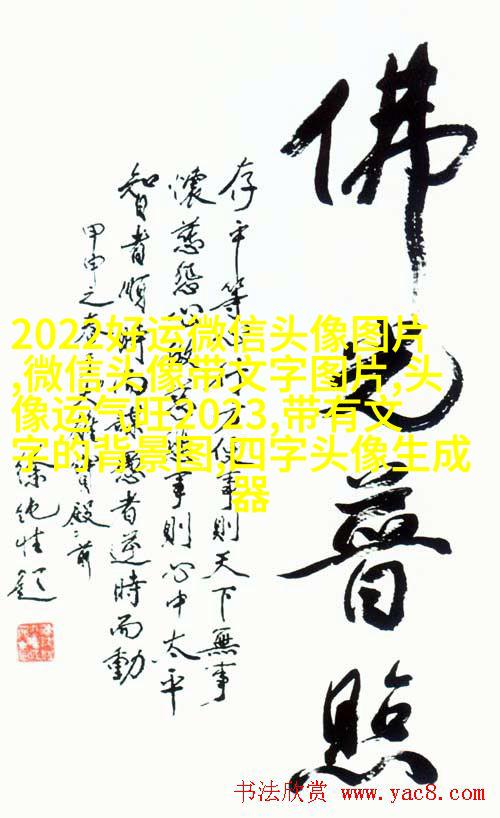 佛光普照
存平等心行方便事則天下無事
懷慈悲心做慈悲事則心中太平
智者順時而謀愚者逆時而動
甲申之春大雄寶殿前
徐題
2022好运微信头像图片
,微信头像带文字图片,头
像运气旺2023,带有文
字的背景图,四字头像生成
器
书法欣赏 www.yac8.com